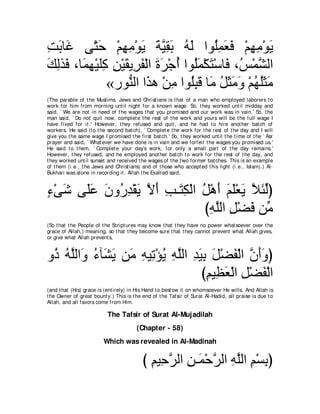 يَوْمِهِمْ فَعَمِلُوا لَهُ بَقِيَّةَ يَوْمِهِمْ حَتَّى غَابَتِ
الشَّمْسُ، فَاسْتَكْمَلُوا أُجْرَةَ الْفَرِيقَيْنِ كِلَيْهِمَا، فَذَلِكَ
مَثَلُهُمْ وَمَثَلُ مَا قَبِلُوا مِنْ هَذَا النُّورِ»
(The parable of the Muslims, Jews and Christians is that of a man who employed laborers to
work for him from morning until night for a known wage. So, they worked until midday and
said, `We are not in need of the wages that you promised and our work was in vain.' So, the
man said, `Do not quit now, complete the rest of the work and yours will be the full wage I
have fixed for it.' However, they refused and quit, and he had to hire another batch of
workers. He said (to the second batch), `Complete the work for the rest of the day and I will
give you the same wage I promised the first batch.' So, they worked until the time of the `Asr
prayer and said, `Whatever we have done is in vain and we forfeit the wages you promised us.'
He said to them, `Complete your day's work, for only a small part of the day remains.'
However, they refused, and he employed another batch to work for the rest of the day, and
they worked until sunset and received the wages of the two former batches. This is an example
of them (i.e., the Jews and Christians) and of those who accepted this light (i.e., Islam).) Al-
Bukhari was alone in recording it. Allah the Exalted said;
(لِّئَلاَّ يَعْلَمَ أَهْلُ الْكِتَـبِ أَلاَّ يَقْدِرُونَ عَلَى شَىْءٍ
مِّن فَضْلِ اللَّهِ)
(So that the People of the Scriptures may know that they have no power whatsoever over the
grace of Allah,) meaning, so that they become sure that they cannot prevent what Allah gives,
or give what Allah prevents,
(وَأَنَّ الْفَضْلَ بِيَدِ اللَّهِ يُؤْتِيهِ مَن يَشَآءُ وَاللَّهُ ذُو
الْفَضْلِ الْعَظِيمِ)
(and that (His) grace is (entirely) in His Hand to bestow it on whomsoever He wills. And Allah is
the Owner of great bounty.) This is the end of the Tafsir of Surat Al-Hadid, all praise is due to
Allah, and all favors come from Him.
The Tafsir of Surat Al-Mujadilah
(Chapter - 58)
Which was revealed in Al-Madinah
(بِسْمِ اللَّهِ الرَّحْمَـنِ الرَّحِيمِ )